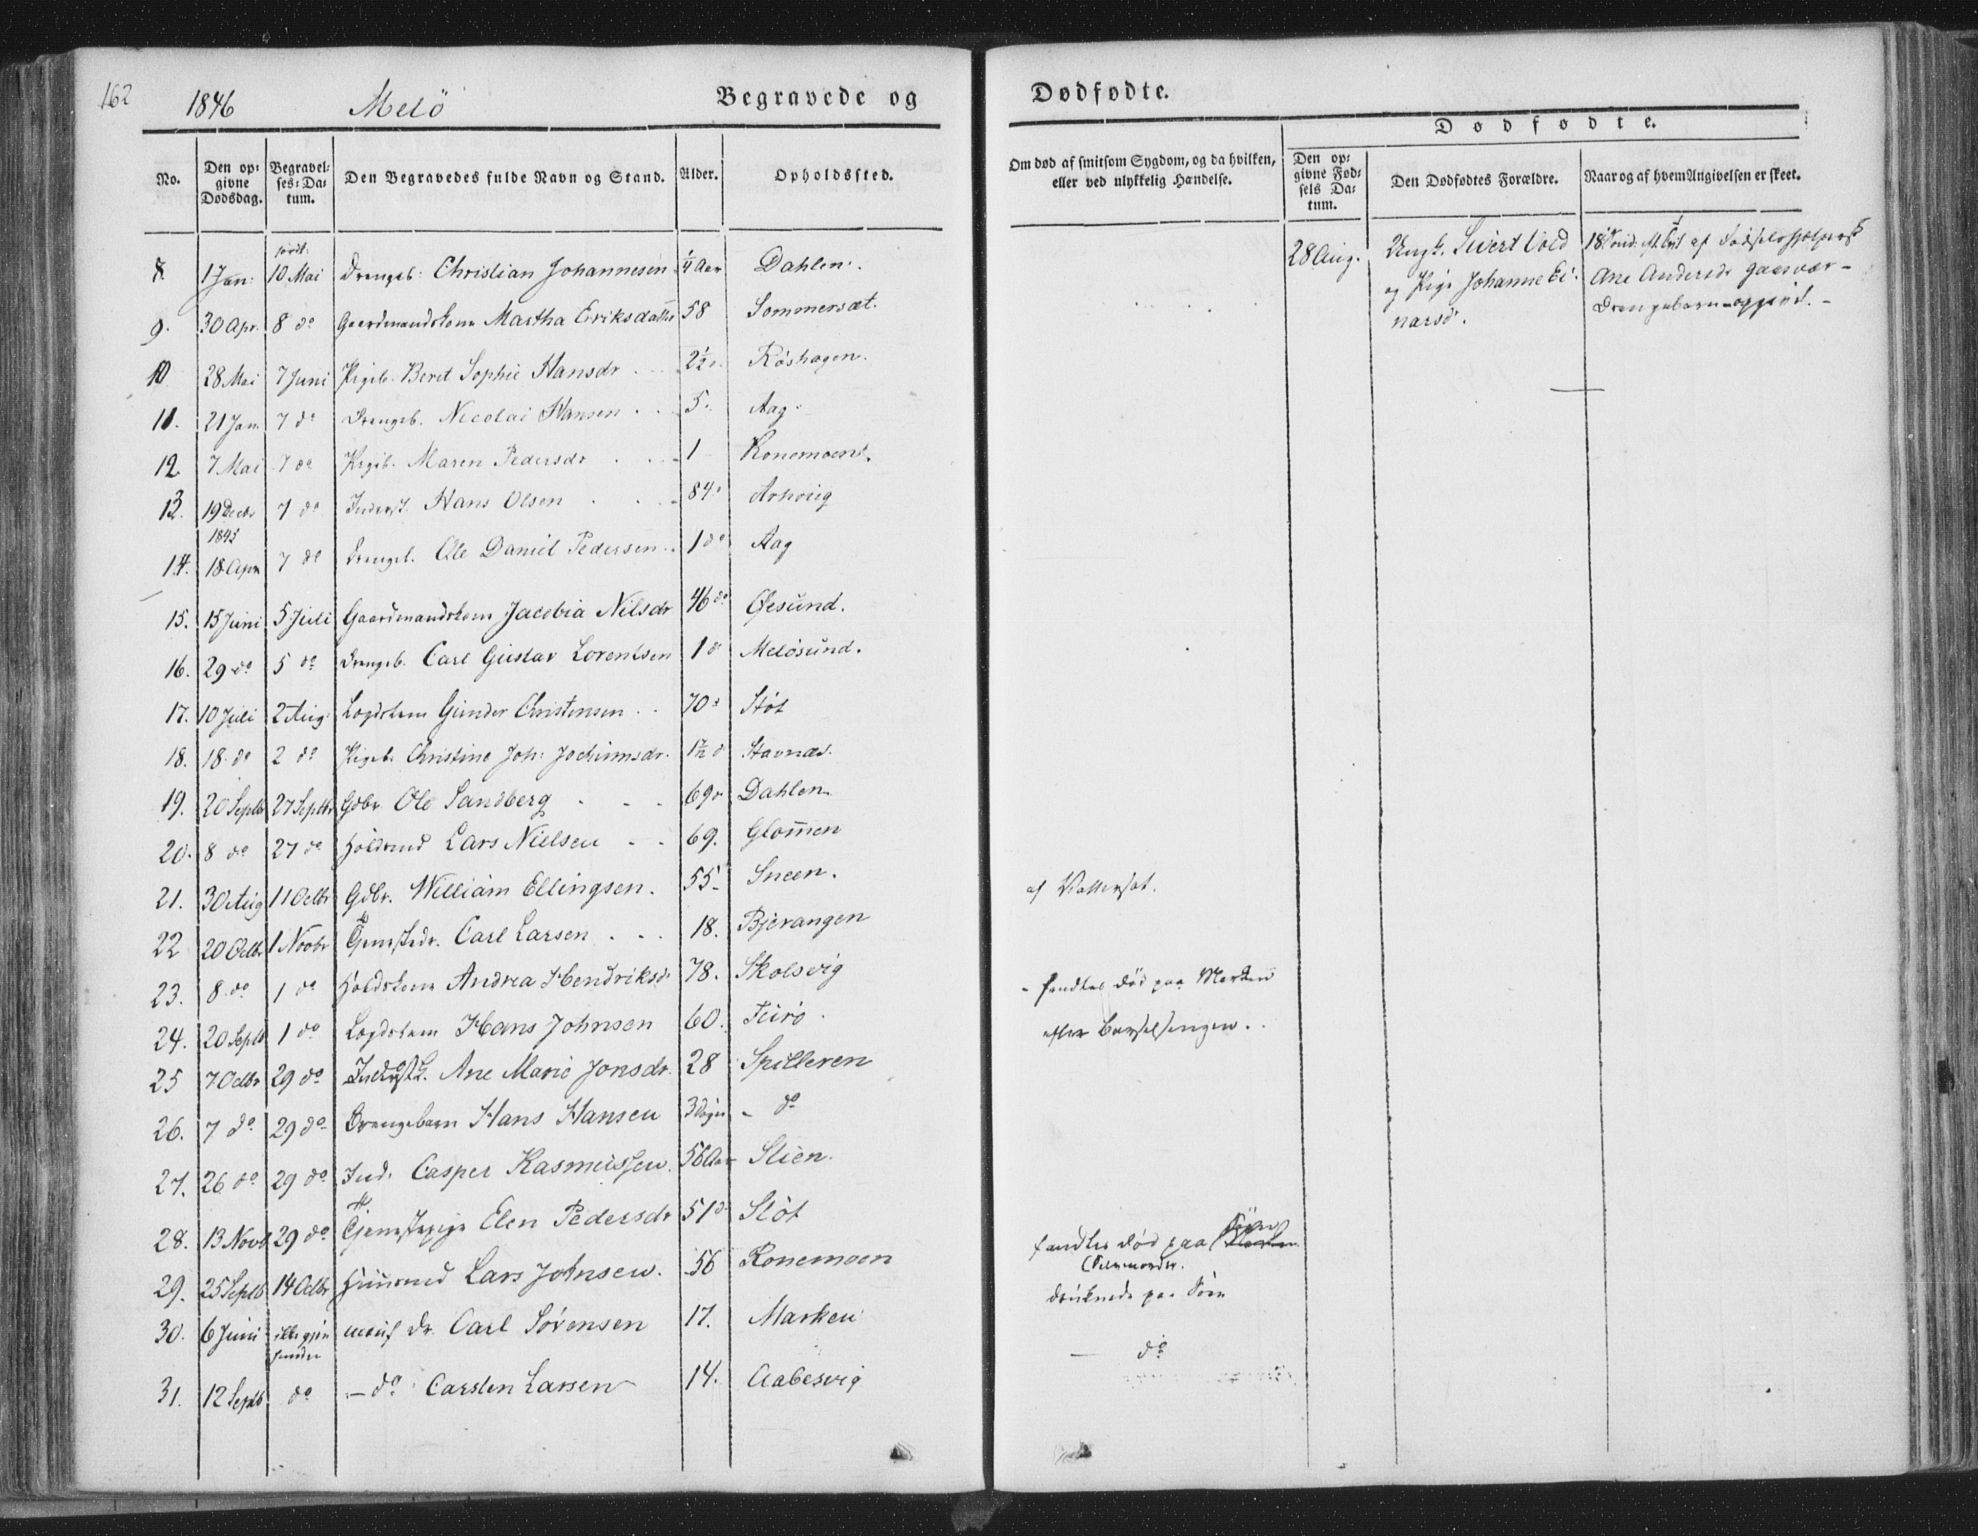 162 1846 Melö Begravede og
No. Den opgivne Dødsdag. Begravelses-Datum. Den Begravedes fulde Navn og Stand. Alder. Opholdssted.
8. 1 Jan: 10 Mai Drengeb: Christian Johannesen 1/4 Aar Dahlen.
9. 30 Apr. 8 do Gaardmandskone Martha Eriksdatter 58 Sommersæt.
10 28 Mai 7 Juni Pigeb. Berit Sophie Hansdr 2 1/2 Røshagen.
11. 21 Jan 7 do Drengeb. Nicolai Hansen 5. Aag
12. 7 Mai 7 do Pigeb. Maren Pedersdr 1 Konemoen.
13. 19 Decbr 1845 7 do Inderst. Hans Olsen 84
14. 18 Apr 7 do Drengeb. Ole Daniel Pedersen 1 do Aag
15. 15 Juni 5 Juli Gaardmandskone Jacobia Nilsdr 46 do Øesund.
16. 29 do 5 do Drengeb. Carl Gustav Lorentsen 1 do Meløsund.
17. 10 Juli 2 Aug. Lægdslem Gunder Christensen 70 Støt
18. 18. do 2 do Pigeb. Christine Joh: Jochimsdr. Stavnæs.
19. 20 Septb 27 Septbr Gdbr Ole Sandberg 69 Dahlen
20. 8 do 27 do Lars Nielsen 69. Glomen
21. 30 Aug 11 Octbr Gdbr. William Ellingsen. 55 Sneen.
22 20 Octbr 1 Novbr Tjenestedr. Carl Larsen 18. Bjerangen
23. 8 do 1 do Andrea Hendriksd. 78. Skolsvig
24. 20 Septb 1 do Lægdslem Hans Johnsen 60. Teirø
25 7 Octbr 29 do Ane Marie Jonsdr. 28 Spilleren
26. 7 do 29 do Drengebarn Hans Hansen 3 Dage - do
27. 26 do 29 do Ind. Casper Rasmussen. 56 Aar Stien.
28. 13 Novb 29 do Tjenestepige Elen Pedersdr 51 Støt
29. 25 Septb 14 Octbr Huusmd Lars Johnsen. 56 Konemoen
30. 6 Juni ikke gjenfunden Carl Sørensen 17. Marken
31. 12 Septb do - do Carsten Larsen 14. Aabesvig
Dødfødte.
Dødfødte.
Om død af smitsom Sygdom, og da hvilken, eller ved ulykkelig Hændelse. Den opgivne Fødsels Datum. Den Dødfødtes Forældre. Naar og af hvem Angivelsen er skeet.
28 Aug. Ungk. Sivert Vold
og Pige Johanne Ei-
narsd. Ane Andersdr
Drengebarn
af Vattersot.
- fandtes død paa Marken
efter Barselsengen.
fandtes død paa
(Selvmorder.
druknede paa Søen
- do